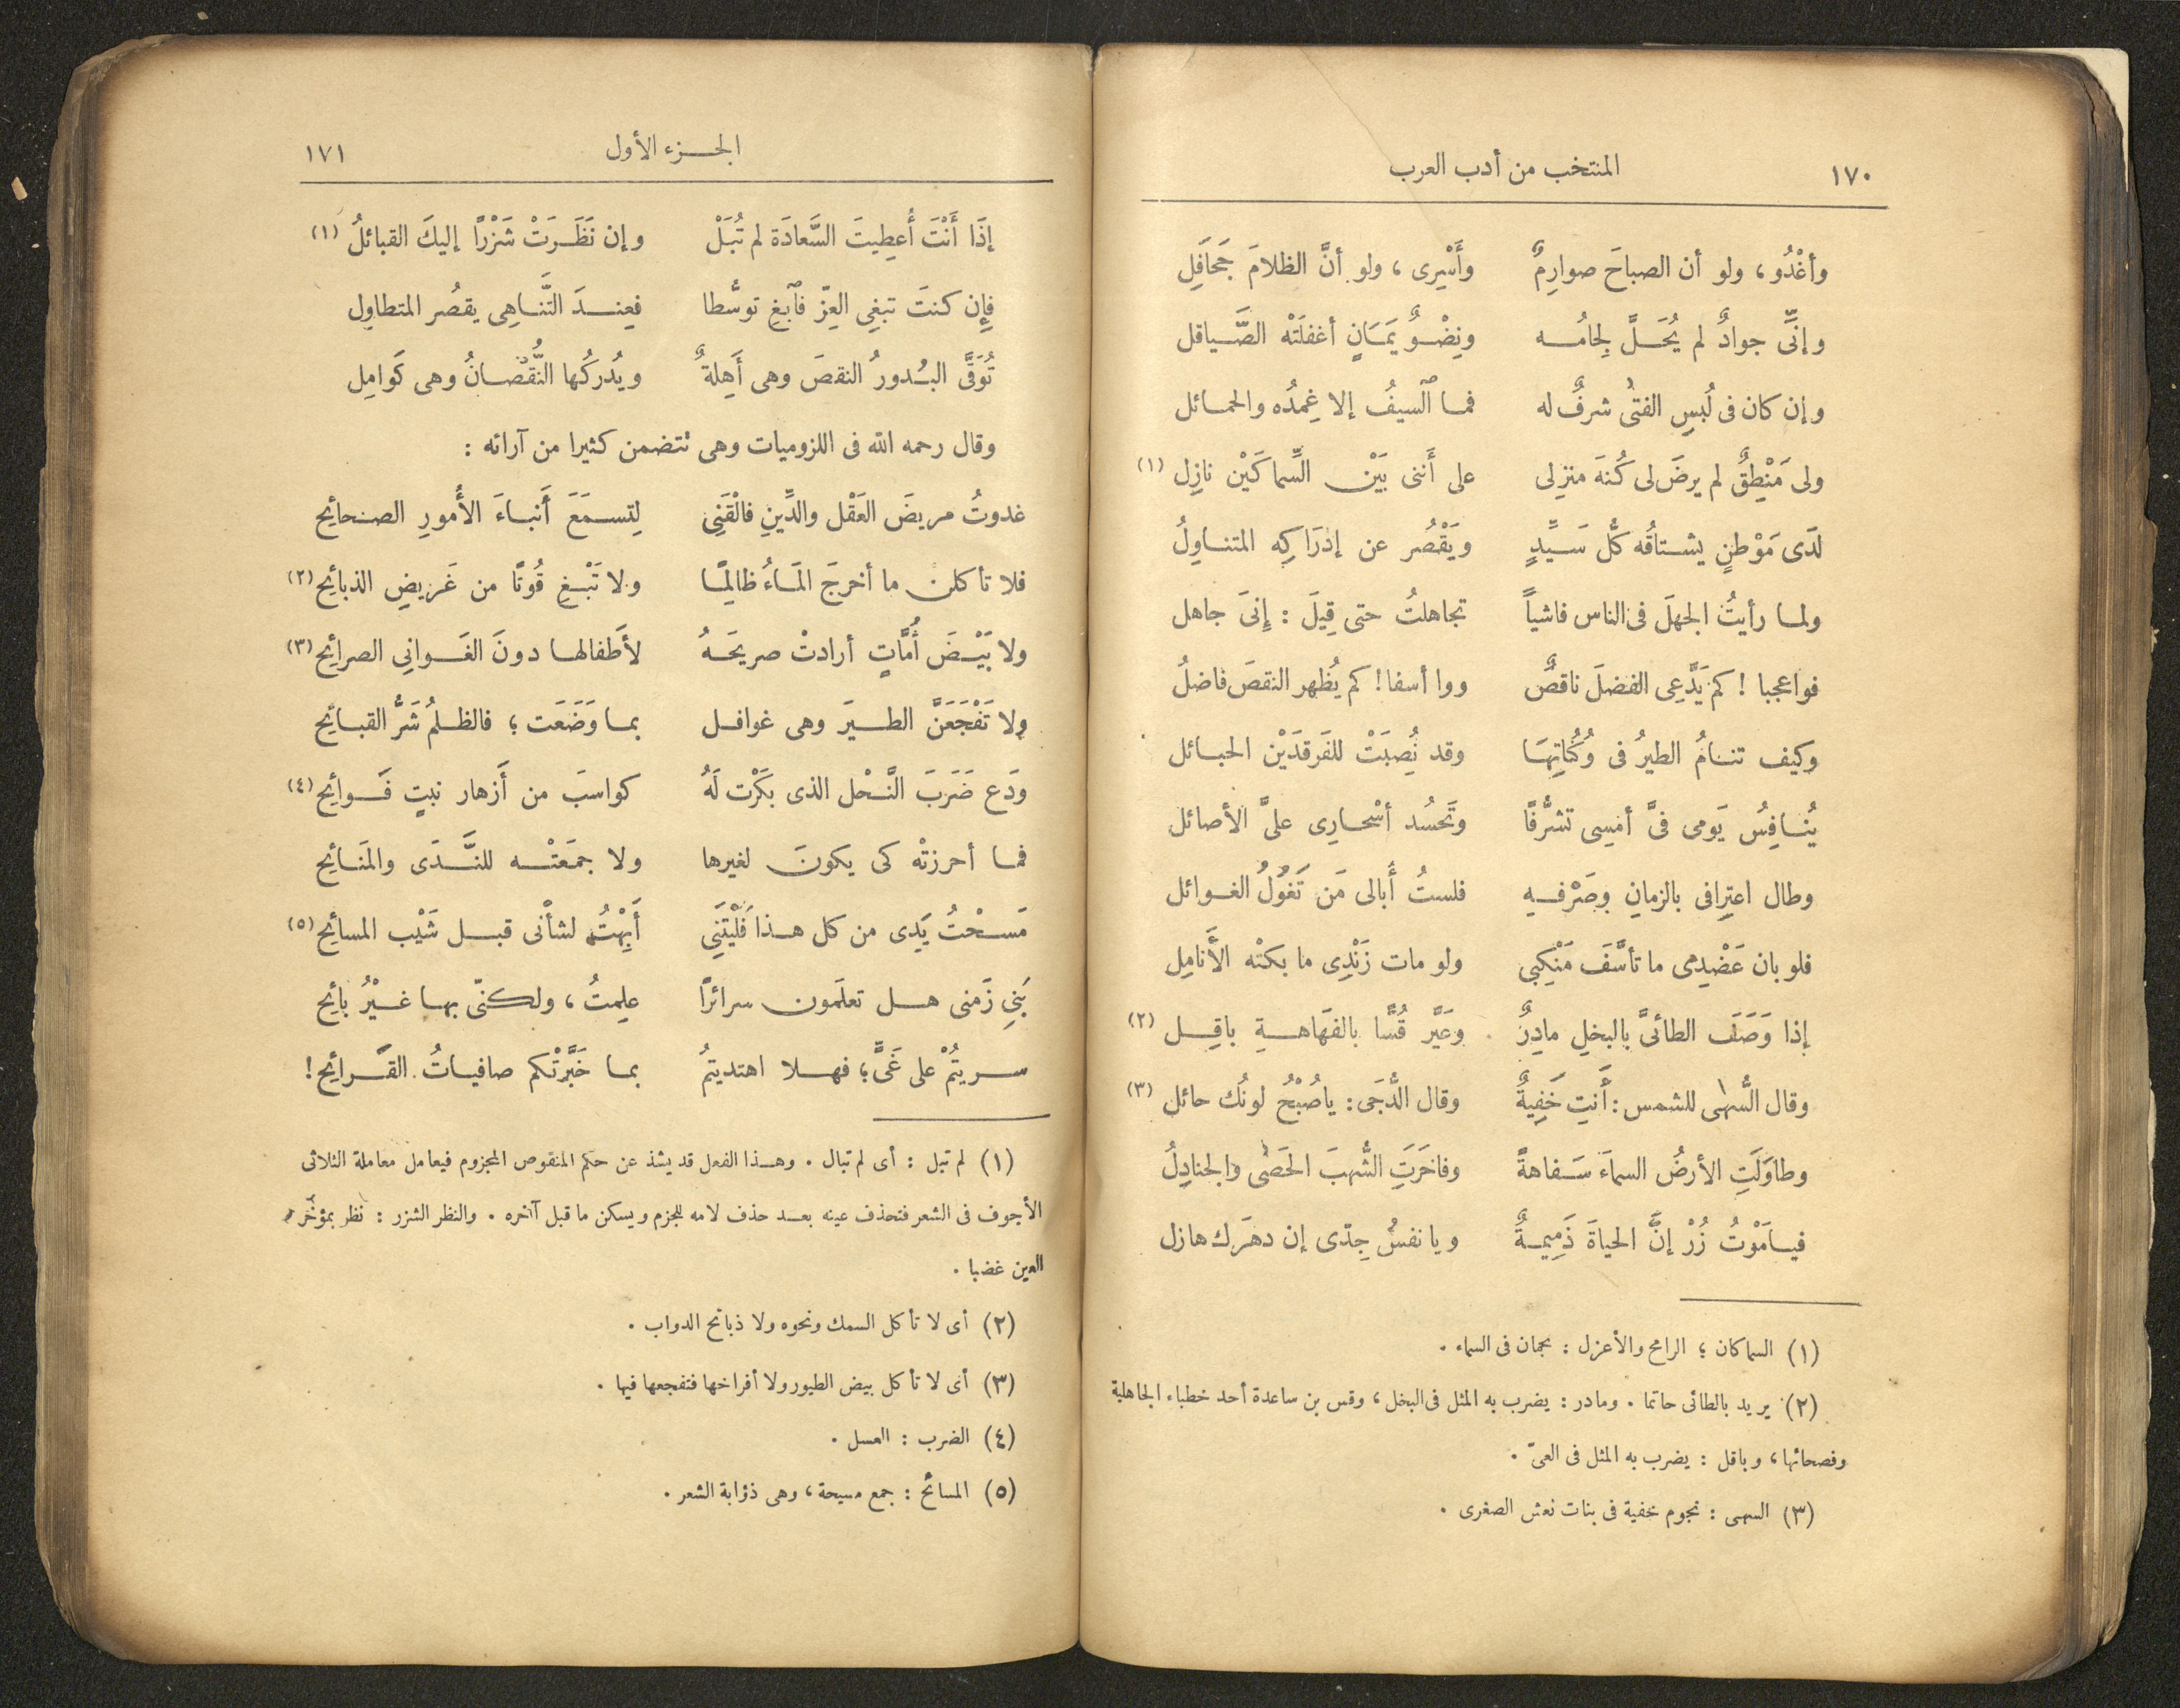 ١٧٠ المنتخب من أدب العرب
وأغْدُو، ولو أن الصباحَ صوارِمٌ وأَسْرِى، ولو أنَّ الظلامَ جَحَافِل
وإنِّى جوادٌ لم يُحَلَّ لِجامُه ونِضْوٌ يَمَانٍ أغفلَتْه الصَّياقل
وإن كان فى لُبسِ الفتى شرفٌ له فما ٱلسيفُ إلا غِمدُه والحمائل
ولى مَنْطِقٌ لم يرضَ لى كُنهَ منزلِى على أَننى بَيْن السِّماكَيْن نازِل (١)
لدَى مَوْطنٍ يشتاقُه كلُّ سَيِّدٍ ويَقْصُر عن إدْرَاكِه المتناوِلُ
ولما رأيتُ الجهلَ فى الناس فاشياً تجاهلتُ حتى قِيلَ : إنىَ جاهل
فواعجبا ! كم يَدَّعِى الفضلَ ناقصٌ ووا أسفا! كم يُظهر النقصَ فاضلُ
وكيف تنامُ الطيرُ فى وُكُنَاتِهَا وقد نُصِبَتْ للفَرقدَيْن الحبائل
يُنافِسُ يَومى فىَّ أمْسِى تشرُّفًا وتَحسُد أسْحارِى علىَّ الأصائل
وطال اعتِرافى بالزمانِ وصَرْفهِ فلستُ أُبالى مَن تَغُولُ الغوائل
فلو بان عَضْدِى ما تأسَّفَ مَنْكِبى ولو مات زَنْدِى ما بكتْه الأَنامِل
إذا وَصَفَ الطائىَّ بالبخلِ مادِرٌ وعَيَّر قُسًّا بالفهَاهةِ باقِل (٢)
وقال السُّهى للشمس : أَنتِ خَفِيةٌ وقال الدُّجَى: ياصُبْحُ لونُك حائل (٣)
وطاوَلَتِ الأرضُ السماءَ سَفاهةً وفاخَرَتِ الشُّهبَ الحَصَى والجنادِلُ
فيامَوْتُ زُرْ إنَّ الحياةَ ذَمِيمةٌ ويا نفسُ جِدّى إن دهرَك هازل
(١) السماكان ؛ الرامح والأعزل : نجمان فى السماء .
(٢) يريد بالطائى حاتما . ومادر : يضرب به المثل فى البخل ، وقس بن ساعدة أحد خطباء الجاهلية
وفصحائها ، وباقل : يضرب به المثل فى العىّ .
(٣) السهى : نجوم خفية فى بنات نعش الصغرى .
الجزء الأول ١٧١
إذَا أَنْتَ أُعطِيتَ السَّعادَة لم تُبَلْ وإن نَظَرَتْ شَزْرًا إليكَ القبائلُ (١)
فإن كنتَ تبغِى العِزّ فٱبغِ توسُّطا فعِندَ التَّناهِى يقصُر المتطاوِل
تُوَقَّى البُدورُ النقصَ وهى أَهِلةٌ ويُدرَكُها النُّقْصانُ وهى كَوامِل
وقال رحمه الله فى اللزوميات وهى تتضمن كثيرا من آرائه :
غدوتُ مريضَ العَقْل والدِّينِ فالْقَنِى لِتسمَعَ أَنباءَ الأُمورِ الصحائِح
فلا تأكلن ما أخرجَ المَاءُ ظالِمًا ولا تَبْغِ قُوتًا من غَريضِ الذبائِح (٢)
ولا بَيْضَ أُمَّاتٍ أرادتْ صريحَهُ لأَطفالها دونَ الغَوانِى الصرائِح (٣)
ولا تَفْجَعَنَّ الطيرَ وهى غوافل بما وَضَعَت ؛ فالظلمُ شَرُّ القبائِح
ودَع ضَرَبَ النَّحْل الذى بَكَرْت لَهُ كواسبَ من أَزهار نبتٍ فَوائِح (٤)
فما أحرزتْه كى يكونَ لغيرها ولا جمَعَتْه للنَّدَى والمَنائِح
مَسحْتُ يَدِى من كل هذا فَلَيْتَنِى أَبِهْتُ لشأْنى قبل شَيْب المسائِح (٥)
بَنِى زَمَنى هل تعلَمون سرائرًا علِمتُ ، ولكنّى بها غيْرُ بائِح
سريتُمْ على غَىٍّ ؛ فهلا اهتديتمُ بما خَبَّرْتْكم صافياتُ القَرائِح !
(١) لم تبل : أى لم تبال . وهذا الفعل قد يشذ عن حكم المنقوص المجزوم فيعامل معاملة الثلاثى
الأجوف فى الشعر فتحذف عينه بعد حذف لامه للجزم ويسكن ما قبل آخره . والنظر الشزر : نظر بمؤخر
العين غضبا .
(٢) أى لا تأكل السمك ونحوه ولا ذبائح الدواب .
(٣) أى لا تأكل بيض الطيور ولا أفراخها فتفجعها فيها .
(٤) الضرب : العسل .
(٥) المسائح : جمع مسيحة ، وهى ذؤابة الشعر .